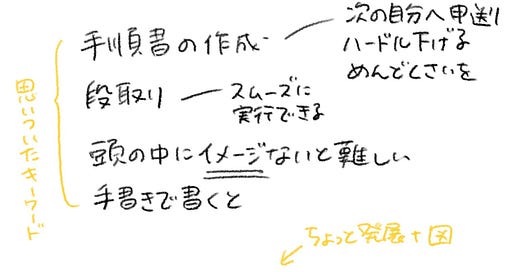 手順書の作成
次の自分へ申送り
ハードル下げる
めんどくさいを
段取り
スムーズに
実行できる
頭の中にイメージないと難しい
手書きで書くと
思いついたキーワード
ちょっと発展+図